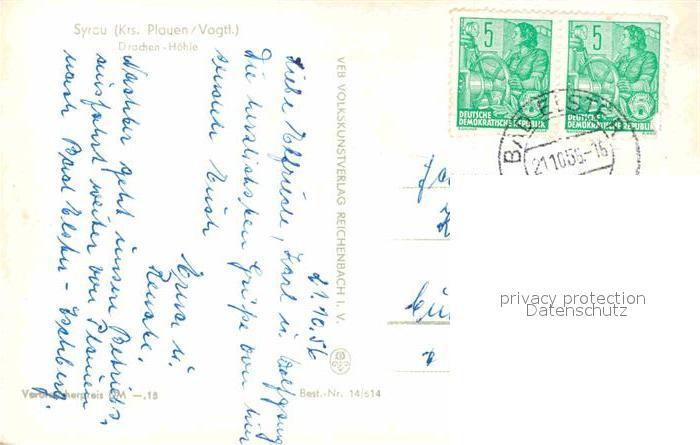 Syrau (Krs. Plauen/Vogtl.)
Drachen-Höhle
21.10.56
Liebe Elfriede, Karl u. Wolfgang
Die herzlichsten Grüße von hier
sendet Euch
Erna u.
Renate.
Nachher geht unsere Betriebs-
ausfahrt weiter von Plauen
nach Bad Elster -
VEB VOLKSKUNSTVERLAG REICHENBACH I. V.
Verbraucherpreis DM -.18
Best.-Nr. 14/614
5
DEUTSCHE
DEMOKRATISCHE REPUBLIK
5
DEUTSCHE
DEMOKRATISCHE REPUBLIK
BAD ELSTER
21.10.56-16
privacy protection
Datenschutz